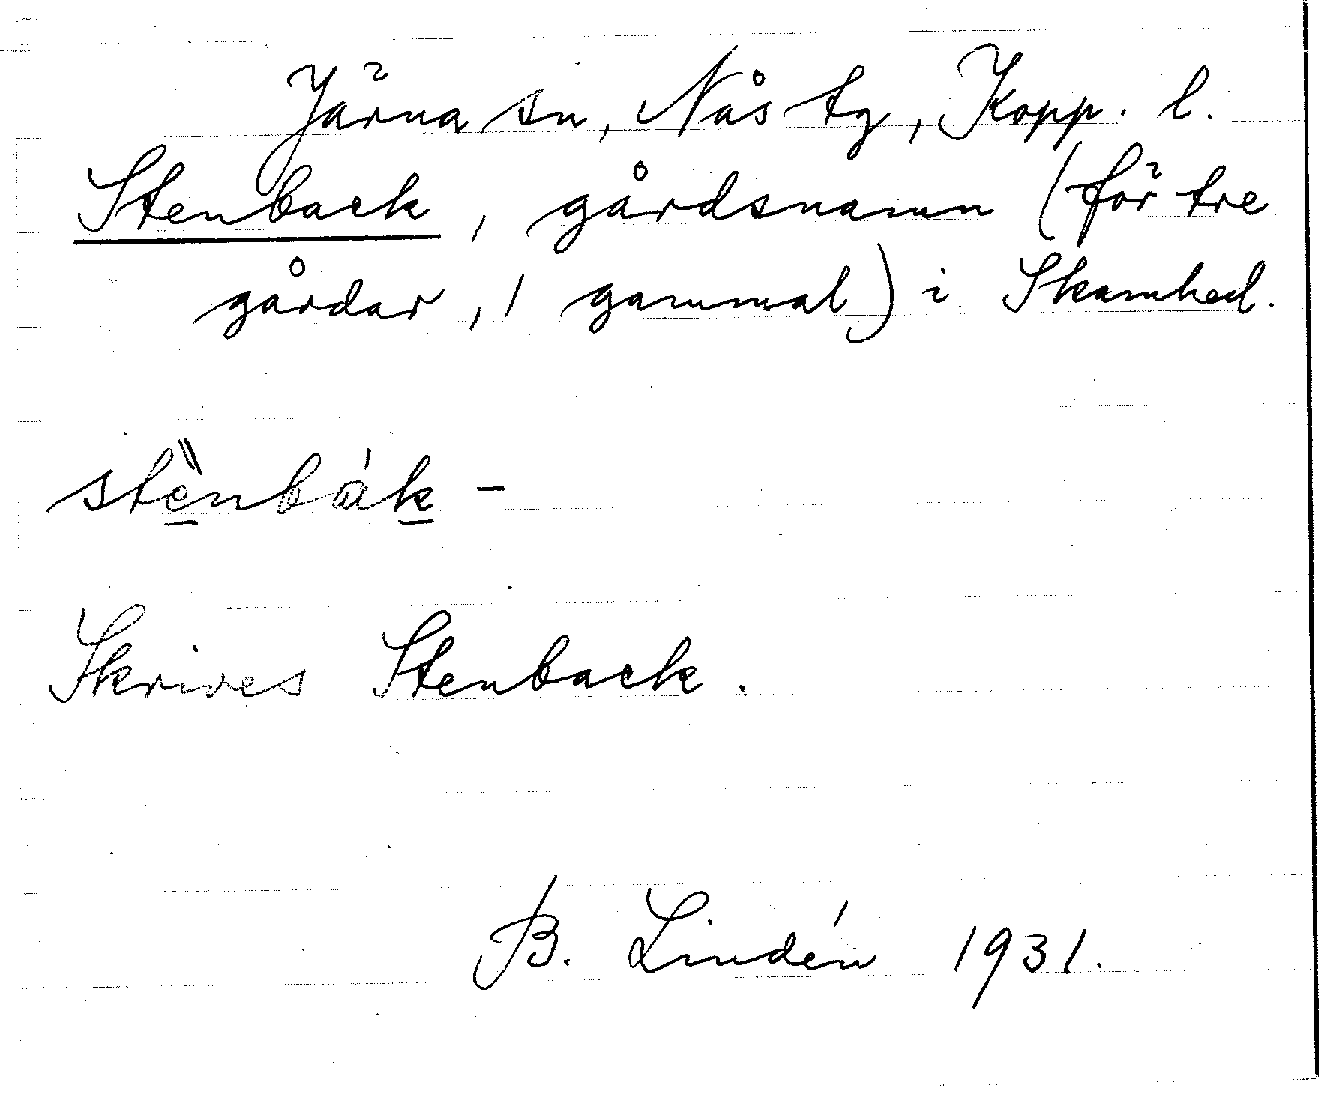 Järna sn, Nås tg, Kopp. l.
Stenback, gårdsnamn (för tre
gårdar, 1 gammal) i Skamhed.
stè̱nbáḵ -
Skrives Stenback.
B. Lindén 1931.